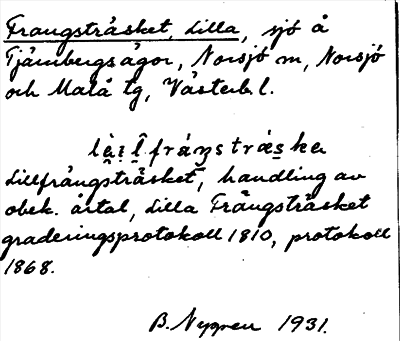 Frangsträsket, Lilla, sjö å
Tjärnbergs ägor, Norsjö sn, Norsjö
och Malå tg, Västerb l.
Lillfrångsträsket, handling av
obek. årtal, Lilla Frångsträsket
graderingsprotokoll 1810, protokoll
1868.
B. Nygren 1931.